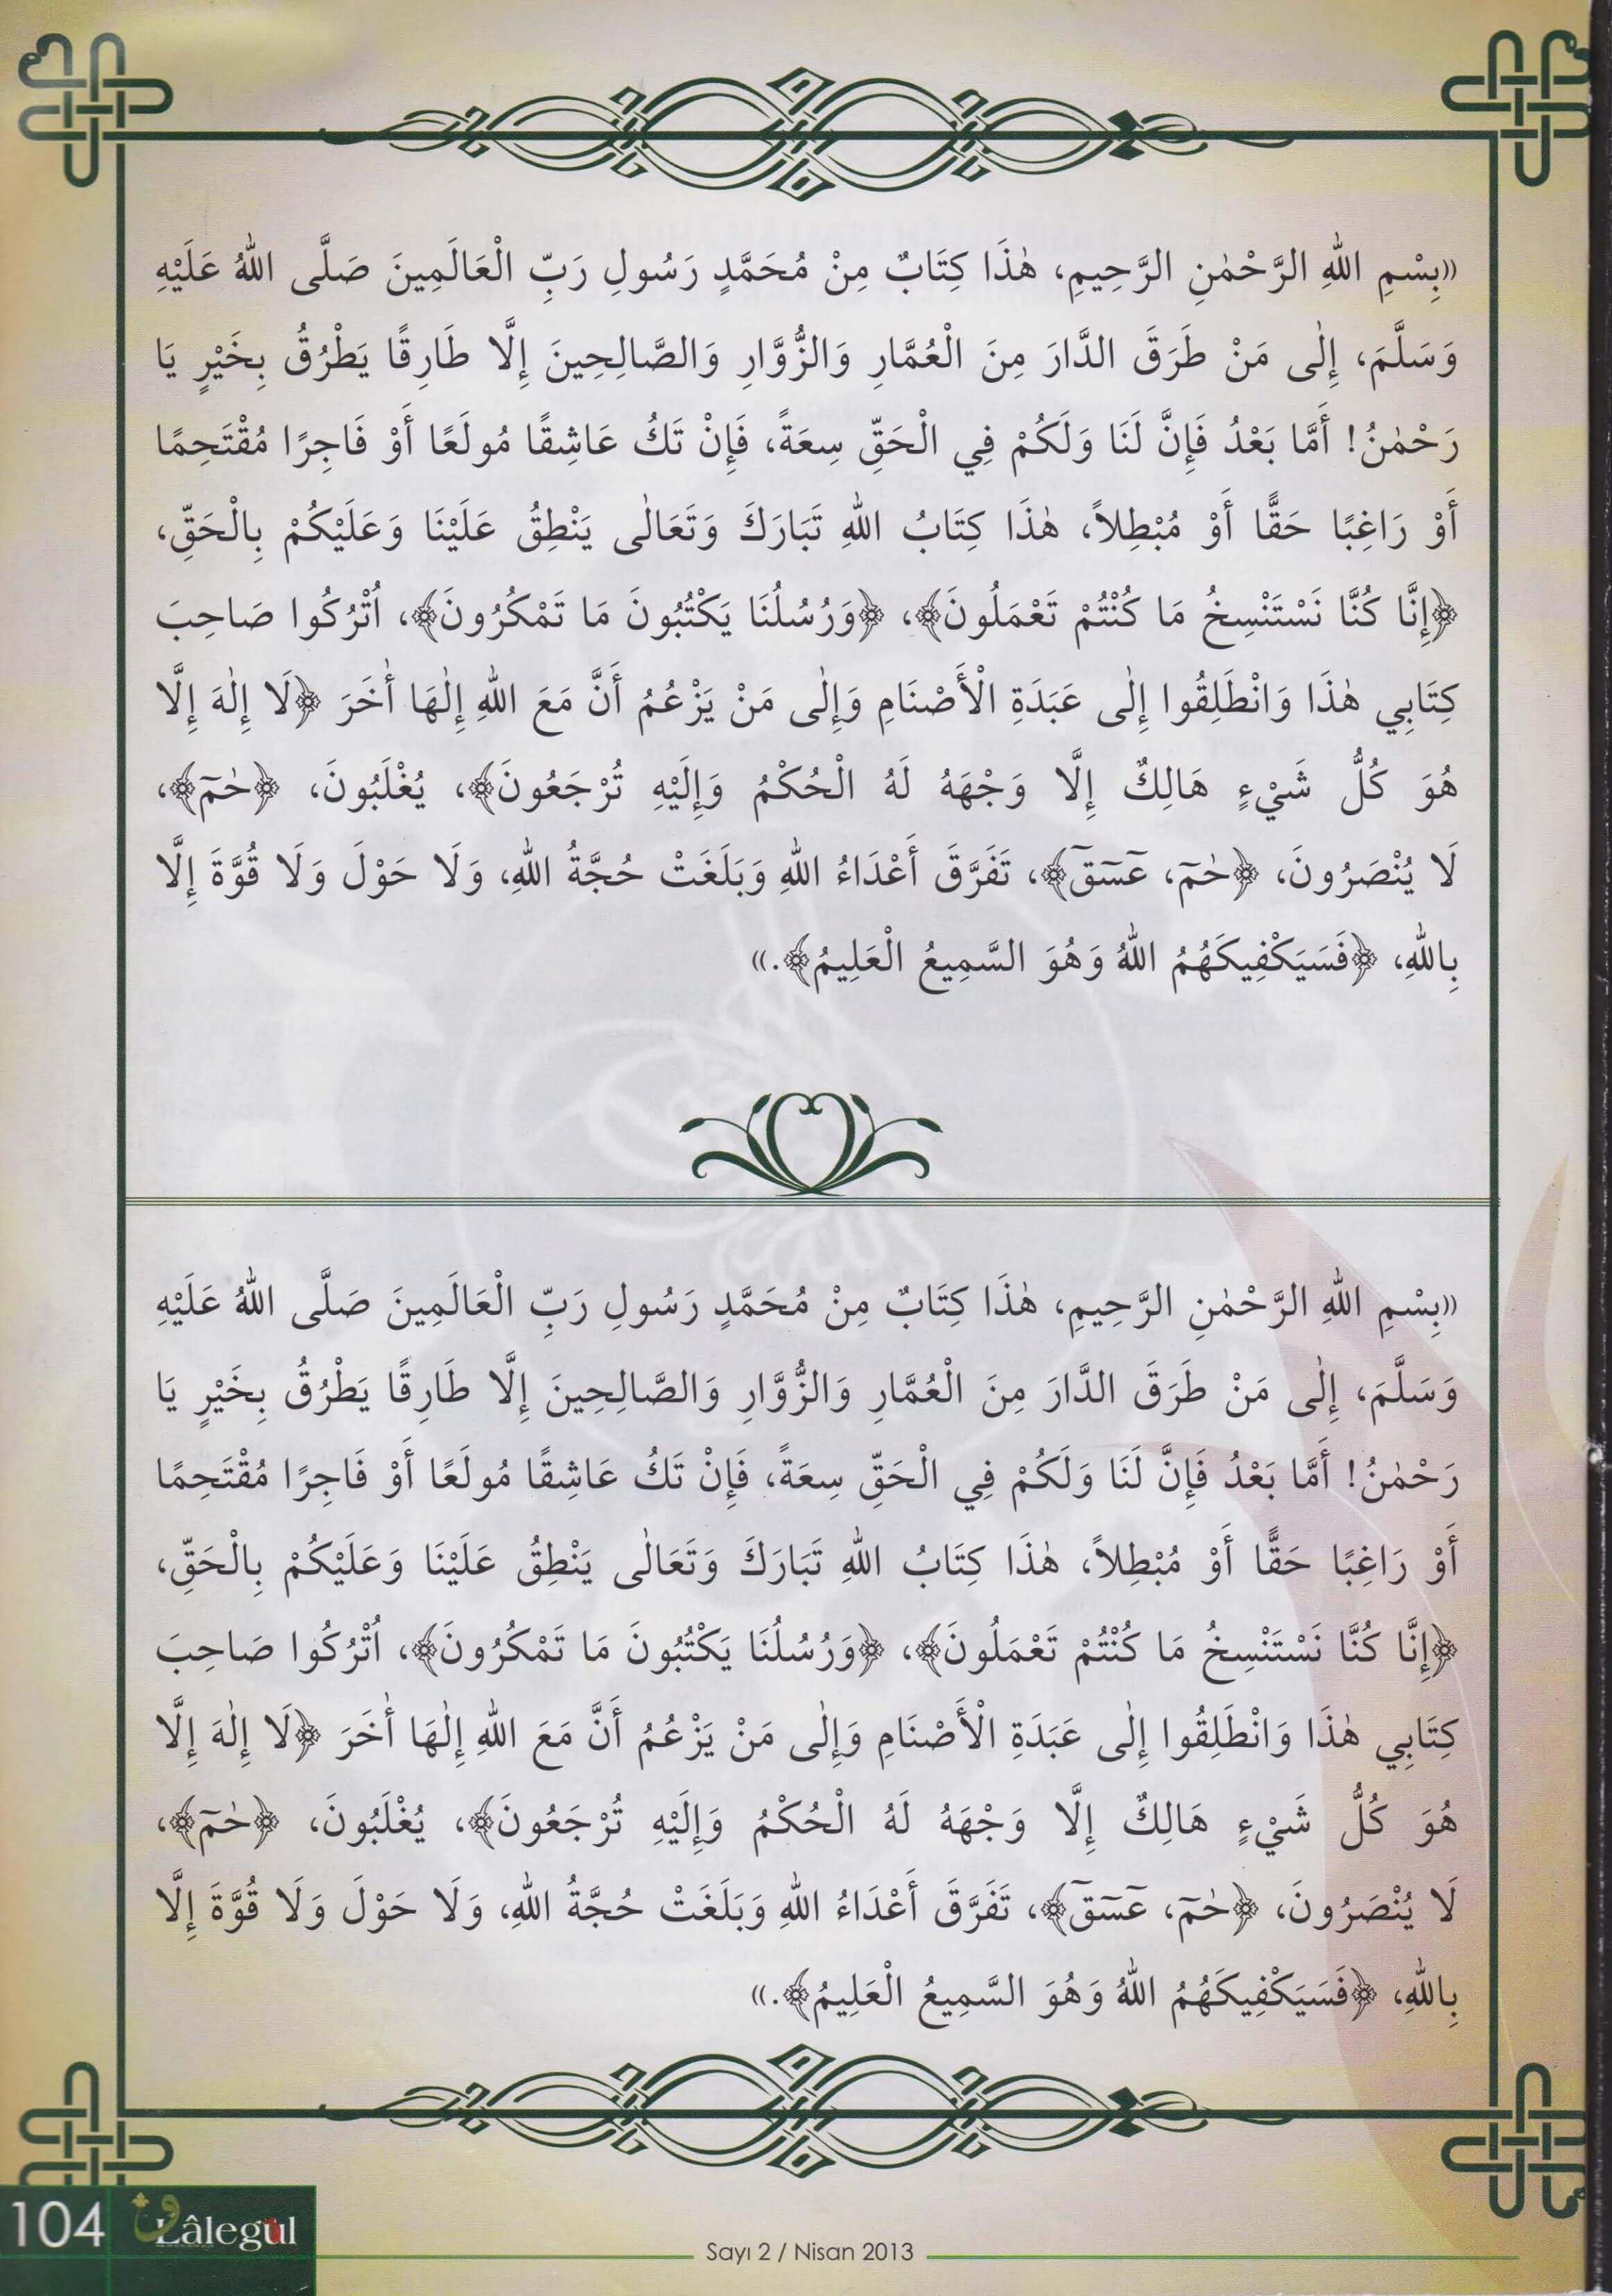 «بِسْمِ اللهِ الرَّحْمٰنِ الرَّحِيمِ، هٰذَا كِتَابٌ مِنْ مُحَمَّدٍ رَسُولِ رَبِّ الْعَالَمِينَ صَلَّى اللهُ عَلَيْهِ
وَسَلَّمَ، إِلٰى مَنْ طَرَقَ الدَّارَ مِنَ الْعُمَّارِ وَالزُّوَّارِ وَالصَّالِحِينَ إِلَّا طَارِقًا يَطْرُقُ بِخَيْرٍ يَا
رَحْمٰنُ! أَمَّا بَعْدُ فَإِنَّ لَنَا وَلَكُمْ فِي الْحَقِّ سِعَةً، فَإِنْ تَكُ عَاشِقًا مُولَعًا أَوْ فَاجِرًا مُقْتَحِمًا
أَوْ رَاغِبًا حَقًّا أَوْ مُبْطِلاً، هٰذَا كِتَابُ اللهِ تَبَارَكَ وَتَعَالٰى يَنْطِقُ عَلَيْنَا وَعَلَيْكُمْ بِالْحَقِّ،
﴿إِنَّا كُنَّا نَسْتَنْسِخُ مَا كُنْتُمْ تَعْمَلُونَ﴾، ﴿وَرُسُلُنَا يَكْتُبُونَ مَا تَمْكُرُونَ﴾، اُتْرُكُوا صَاحِبَ
كِتَابِي هٰذَا وَانْطَلِقُوا إِلٰى عَبَدَةِ الْأَصْنَامِ وَإِلٰى مَنْ يَزْعُمُ أَنَّ مَعَ اللهِ إِلٰهَا أٰخَرَ ﴿لَا إِلٰهَ إِلَّا
هُوَ كُلُّ شَيْءٍ هَالِكٌ إِلَّا وَجْهَهُ لَهُ الْحُكْمُ وَإِلَيْهِ تُرْجَعُونَ﴾، يُغْلَبُونَ، ﴿حٰمٓ﴾،
لَا يُنْصَرُونَ، ﴿حٰمٓ، عٓسٓقٓ﴾، تَفَرَّقَ أَعْدَاءُ اللهِ وَبَلَغَتْ حُجَّةُ اللهِ، وَلَا حَوْلَ وَلَا قُوَّةَ إِلَّا
بِاللهِ، ﴿فَسَيَكْفِيكَهُمُ اللهُ وَهُوَ السَّمِيعُ الْعَلِيمُ﴾.»
«بِسْمِ اللهِ الرَّحْمٰنِ الرَّحِيمِ، هٰذَا كِتَابٌ مِنْ مُحَمَّدٍ رَسُولِ رَبِّ الْعَالَمِينَ صَلَّى اللهُ عَلَيْهِ
وَسَلَّمَ، إِلٰى مَنْ طَرَقَ الدَّارَ مِنَ الْعُمَّارِ وَالزُّوَّارِ وَالصَّالِحِينَ إِلَّا طَارِقًا يَطْرُقُ بِخَيْرٍ يَا
رَحْمٰنُ! أَمَّا بَعْدُ فَإِنَّ لَنَا وَلَكُمْ فِي الْحَقِّ سِعَةً، فَإِنْ تَكُ عَاشِقًا مُولَعًا أَوْ فَاجِرًا مُقْتَحِمًا
أَوْ رَاغِبًا حَقًّا أَوْ مُبْطِلاً، هٰذَا كِتَابُ اللهِ تَبَارَكَ وَتَعَالٰى يَنْطِقُ عَلَيْنَا وَعَلَيْكُمْ بِالْحَقِّ،
﴿إِنَّا كُنَّا نَسْتَنْسِخُ مَا كُنْتُمْ تَعْمَلُونَ﴾، ﴿وَرُسُلُنَا يَكْتُبُونَ مَا تَمْكُرُونَ﴾، اُتْرُكُوا صَاحِبَ
كِتَابِي هٰذَا وَانْطَلِقُوا إِلٰى عَبَدَةِ الْأَصْنَامِ وَإِلٰى مَنْ يَزْعُمُ أَنَّ مَعَ اللهِ إِلٰهَا أٰخَرَ ﴿لَا إِلٰهَ إِلَّا
هُوَ كُلُّ شَيْءٍ هَالِكٌ إِلَّا وَجْهَهُ لَهُ الْحُكْمُ وَإِلَيْهِ تُرْجَعُونَ﴾، يُغْلَبُونَ، ﴿حٰمٓ﴾،
لَا يُنْصَرُونَ، ﴿حٰمٓ، عٓسٓقٓ﴾، تَفَرَّقَ أَعْدَاءُ اللهِ وَبَلَغَتْ حُجَّةُ اللهِ، وَلَا حَوْلَ وَلَا قُوَّةَ إِلَّا
بِاللهِ، ﴿فَسَيَكْفِيكَهُمُ اللهُ وَهُوَ السَّمِيعُ الْعَلِيمُ﴾.»
104 Lâlegül
Sayı 2 / Nisan 2013